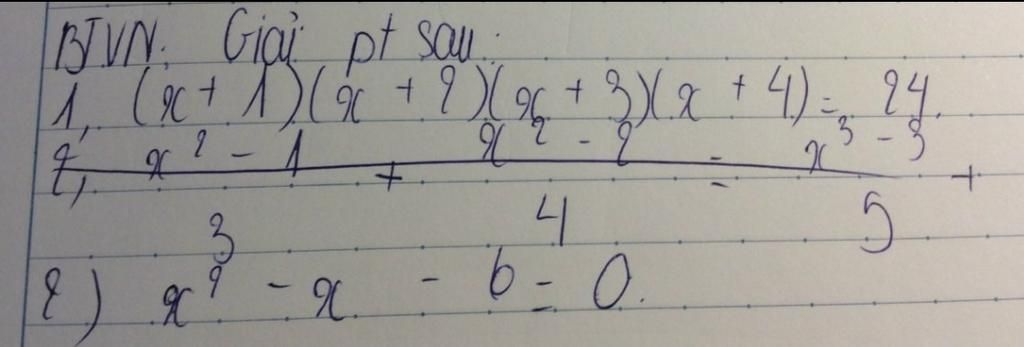 BTVN: Giải pt sau:
1, (x + 1)(x + 2)(x + 3)(x + 4) = 24.
2, x² - 1 / 3 + x² - 2 / 4 = x³ - 3 / 5 +
2) x² - x - 6 = 0.